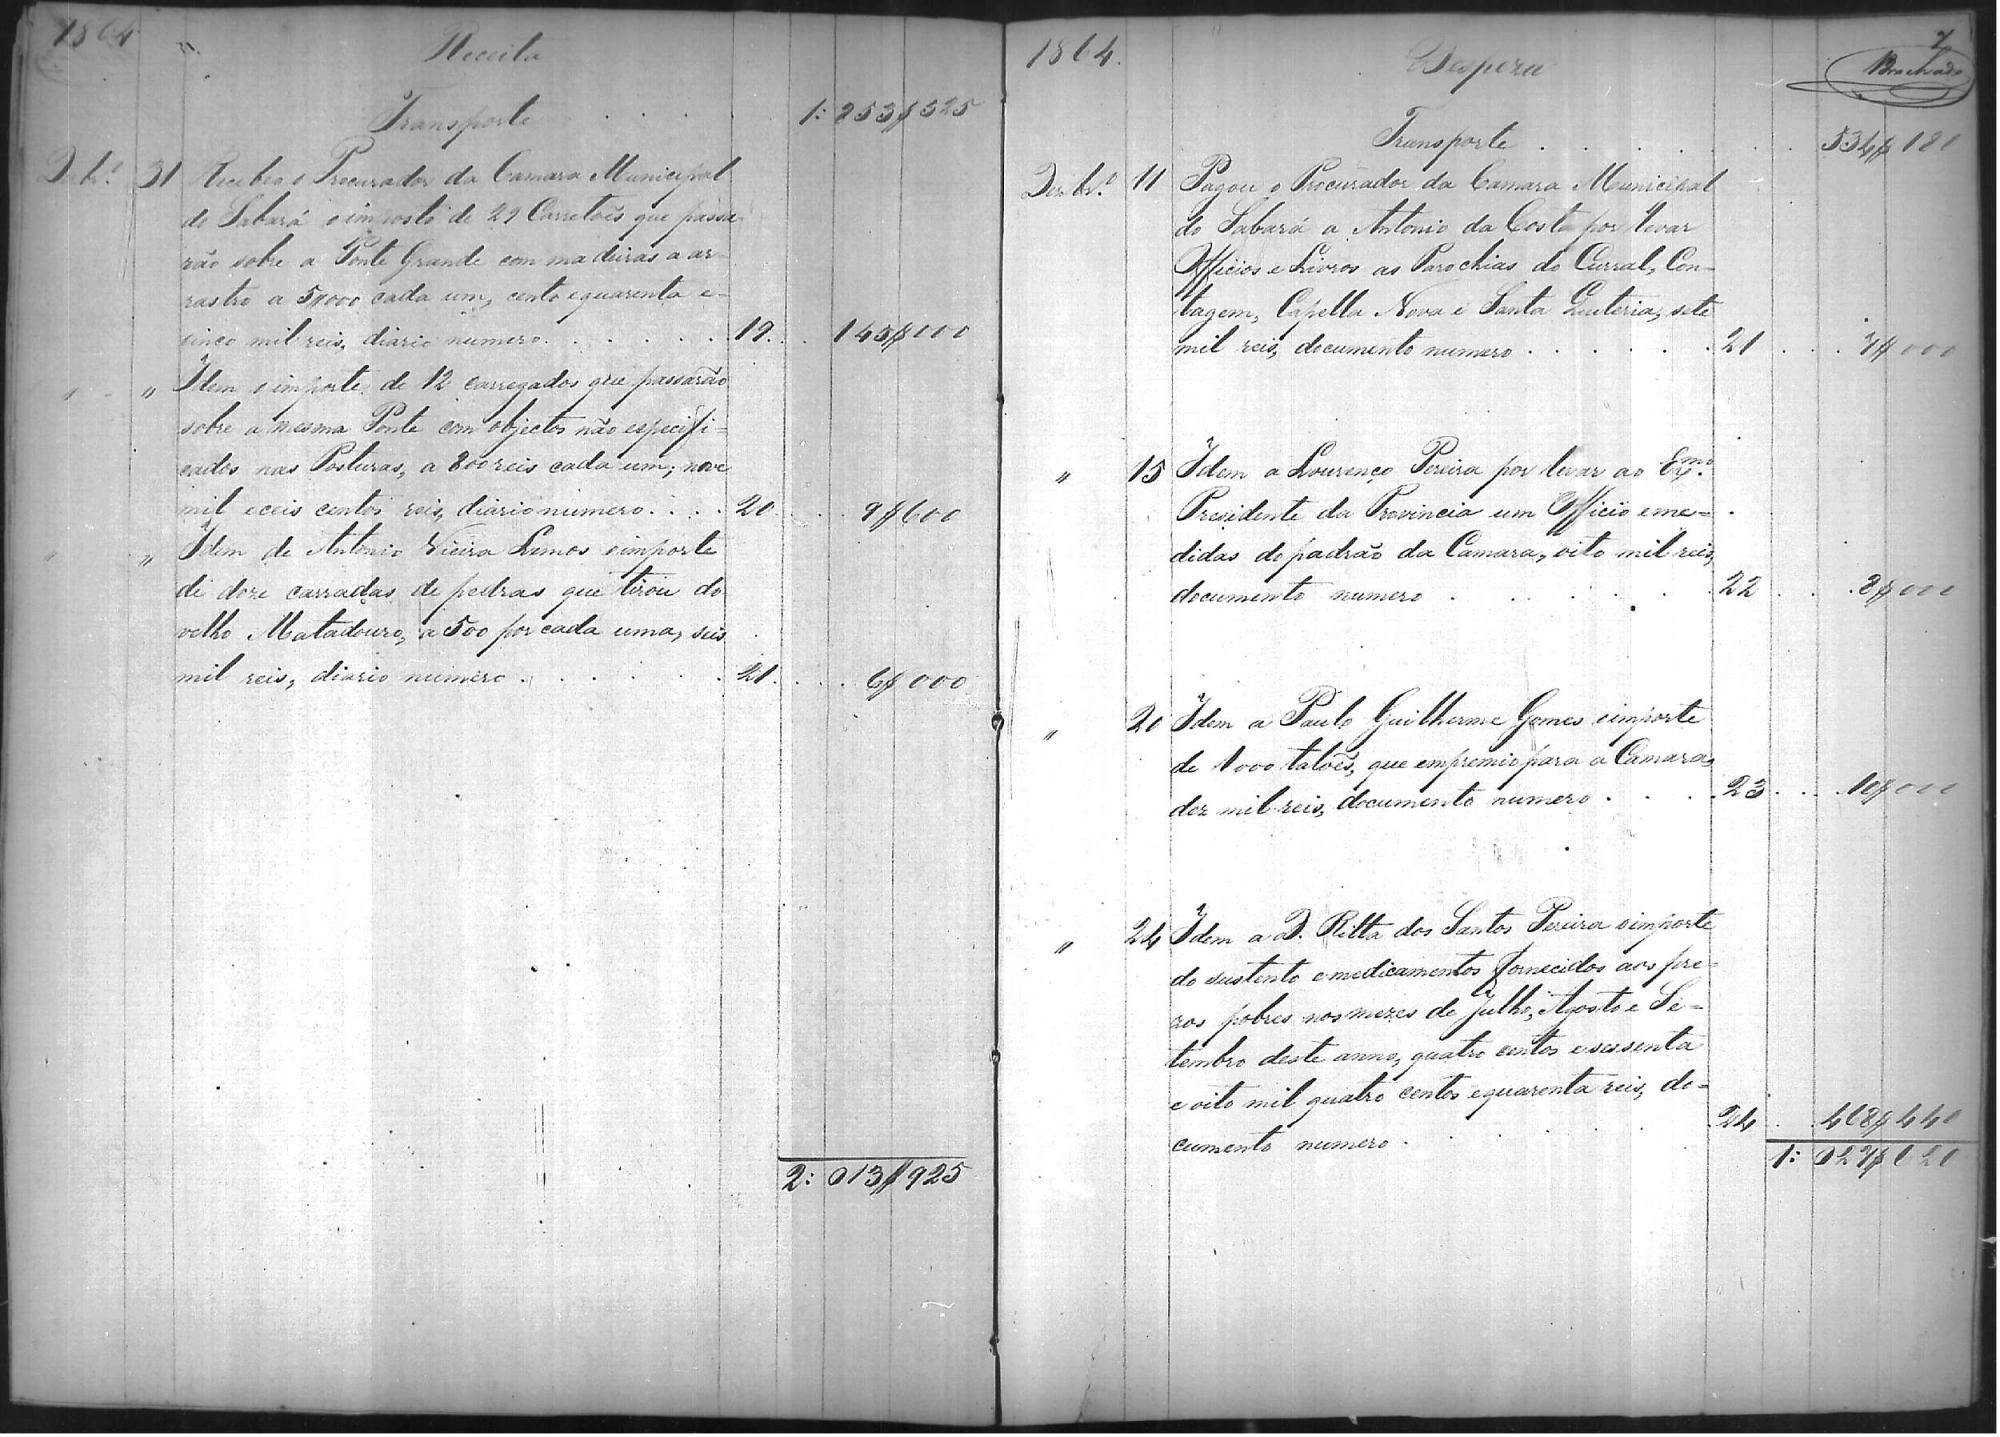 1864
Receita
Transporte . . . . 1:853$325
Dezbr.º 31 Recebeo o Procurador da Camara Municipal
do Sabará o imposto de 29 Carretoēs que passa
rão sobre a Ponte Grande com madeiras a ar-
rastro a 5$000 cada um, cento equarenta e
cinco mil reis, diario numero . . . . . . 19 . . 145$000
" " Idem o importe de 12 carregados que passarão
sobre a mesma Ponte com objectos não especifi-
cados nas Posturas, a 800 reis cada um; nove
mil eceis centos reis, diario numero . . . . 20 . . 9$600
" " Idem de Antonio Vieira Lemos oimporte
de doze carradas de pedras que tirou do
velho Matadouro, a 500 por cada uma, seis
mil reis, diario numero . . . . . . 21 . . . 6$000
2:013$925
1864.
Despeza
7
Transporte . . . . . . . 534$180
Dezbr.º 11 Pagou o Procurador da Camara Municipal
do Sabará a Antonio da Costa por levar
Officios e Livros as Parochias do Curral, Con-
tagem, Capella Nova e Santa Quiteria, sete
mil reis, documento numero . . . . . . 21 . . . 7$000
" 15 Idem a Lourenço Pereira por levar ao Exmo.
Presidente da Provincia um Officio eme-
didas do padrão da Camara, oito mil reis,
documento numero . . . . . . 22 . . . 8$000
" 20 Idem a Paulo Guilherme Gomes oimporte
de 1000 taloēs, que empremio para a Camara,
dez mil reis, documento numero . . . . 23 . . . 10$000
" 24 Idem a D. Ritta dos Santos Pereira oimporte
do sustento emedicamentos fornecidos aos pre-
zos pobres nos mezes de Julho, Agosto e Se-
tembro deste anno, quatro centos esessenta
e oito mil quatro centos equarenta reis, do-
cumento numero . . . . . . 24 . . 468$440
1:027$620